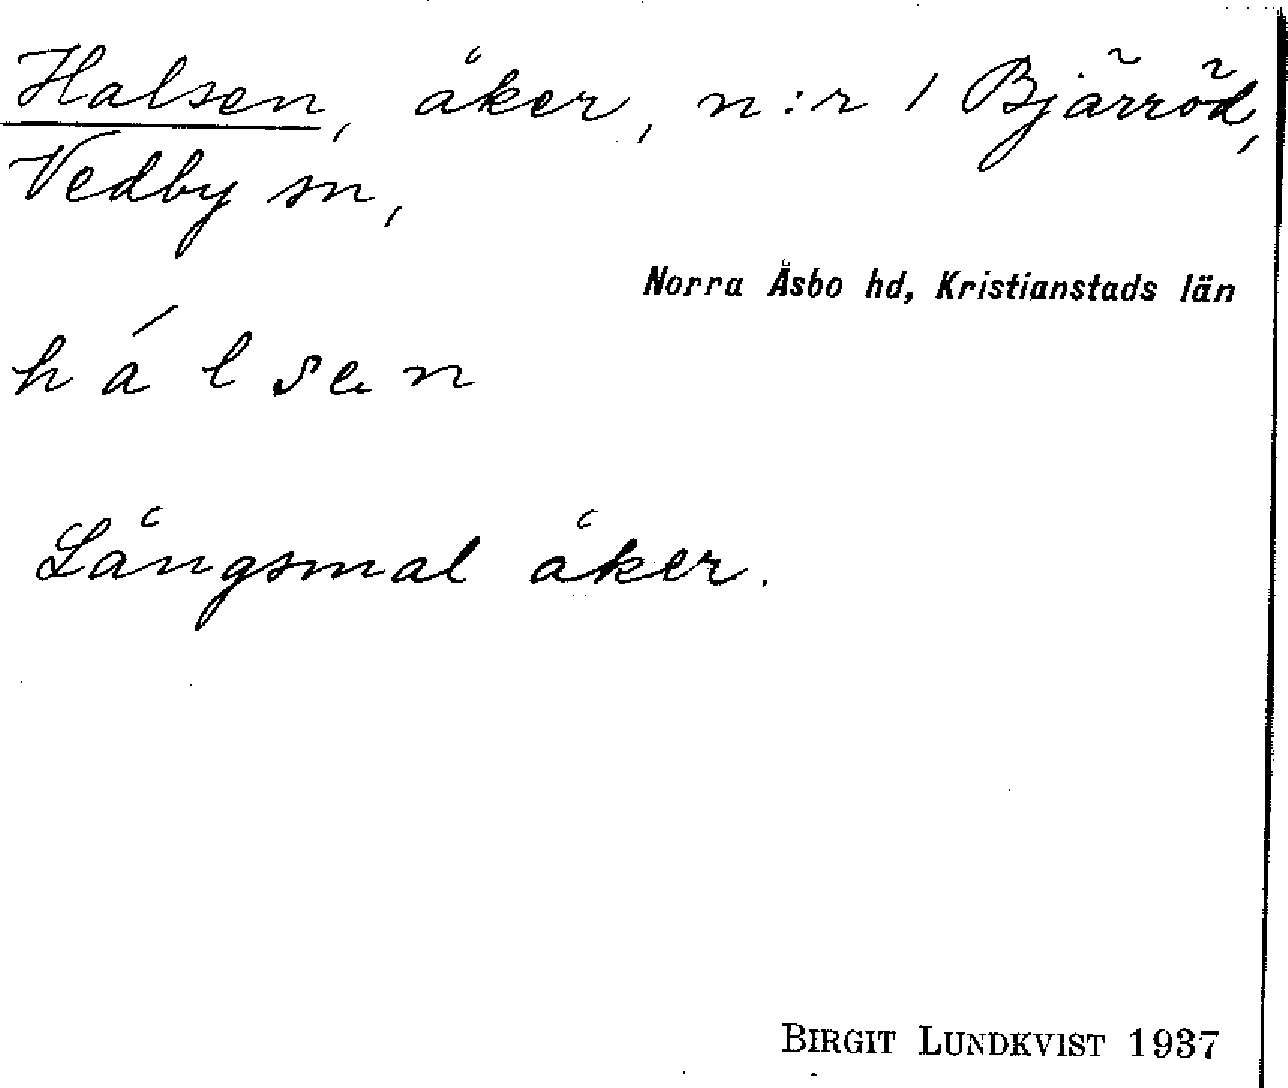 Halsen, åker, n:r 1 Bjärröd,
Vedby sn,
Norra Åsbo hd, Kristianstads län
hálsen
Långsmal åker.
BIRGIT LUNDKVIST 1937